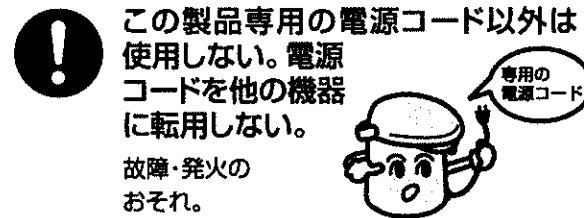 この製品専用の電源コード以外は
使用しない。電源
コードを他の機器
に転用しない。
故障・発火の
おそれ。
専用の
電源コード